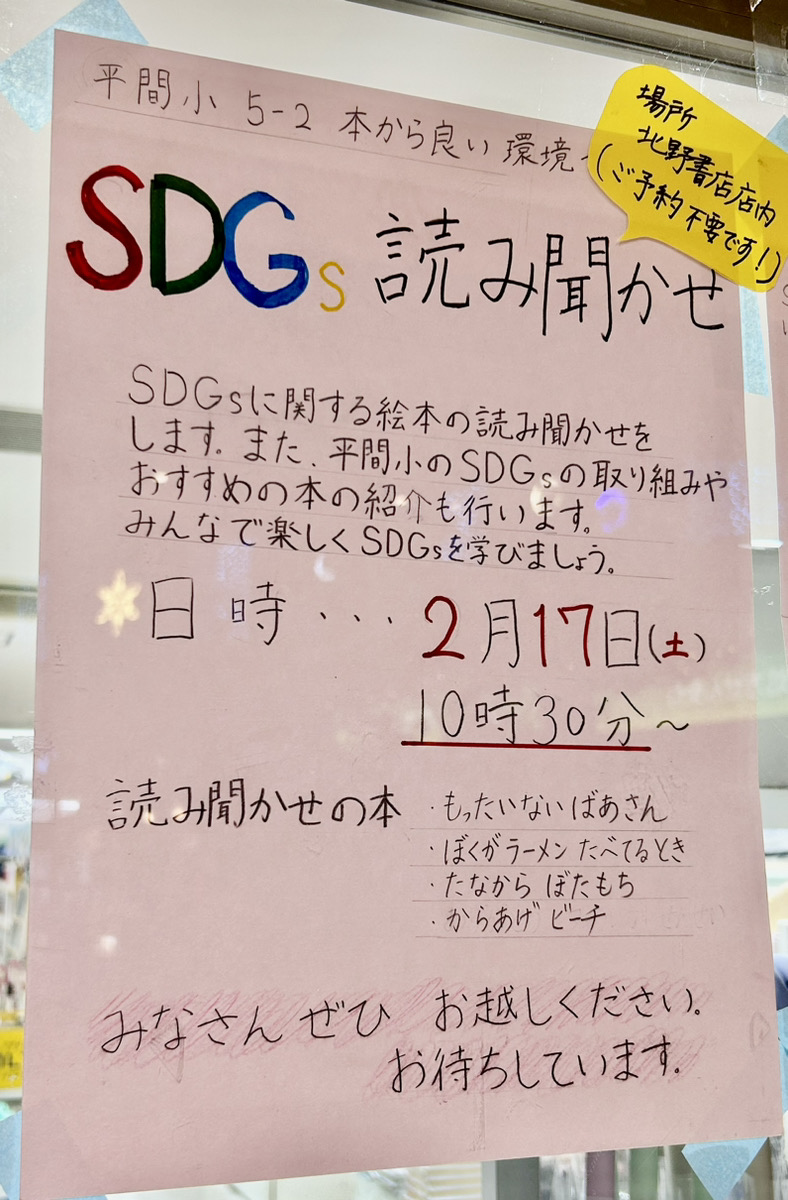 平間小 5-2 本から良い 環境
場所
北野書店店内
(ご予約不要です!)
SDGs 読み聞かせ
SDGsに関する絵本の読み聞かせを
します。また、平間小のSDGsの取り組みや
おすすめの本の紹介も行います。
みんなで楽しくSDGsを学びましょう。
日時... 2月17日(土)
10時30分~
読み聞かせの本
・もったいないばあさん
・ぼくがラーメン たべてるとき
・たなから ぼたもち
・からあげ ビーチ
みなさん ぜひ お越しください。
お待ちしています。